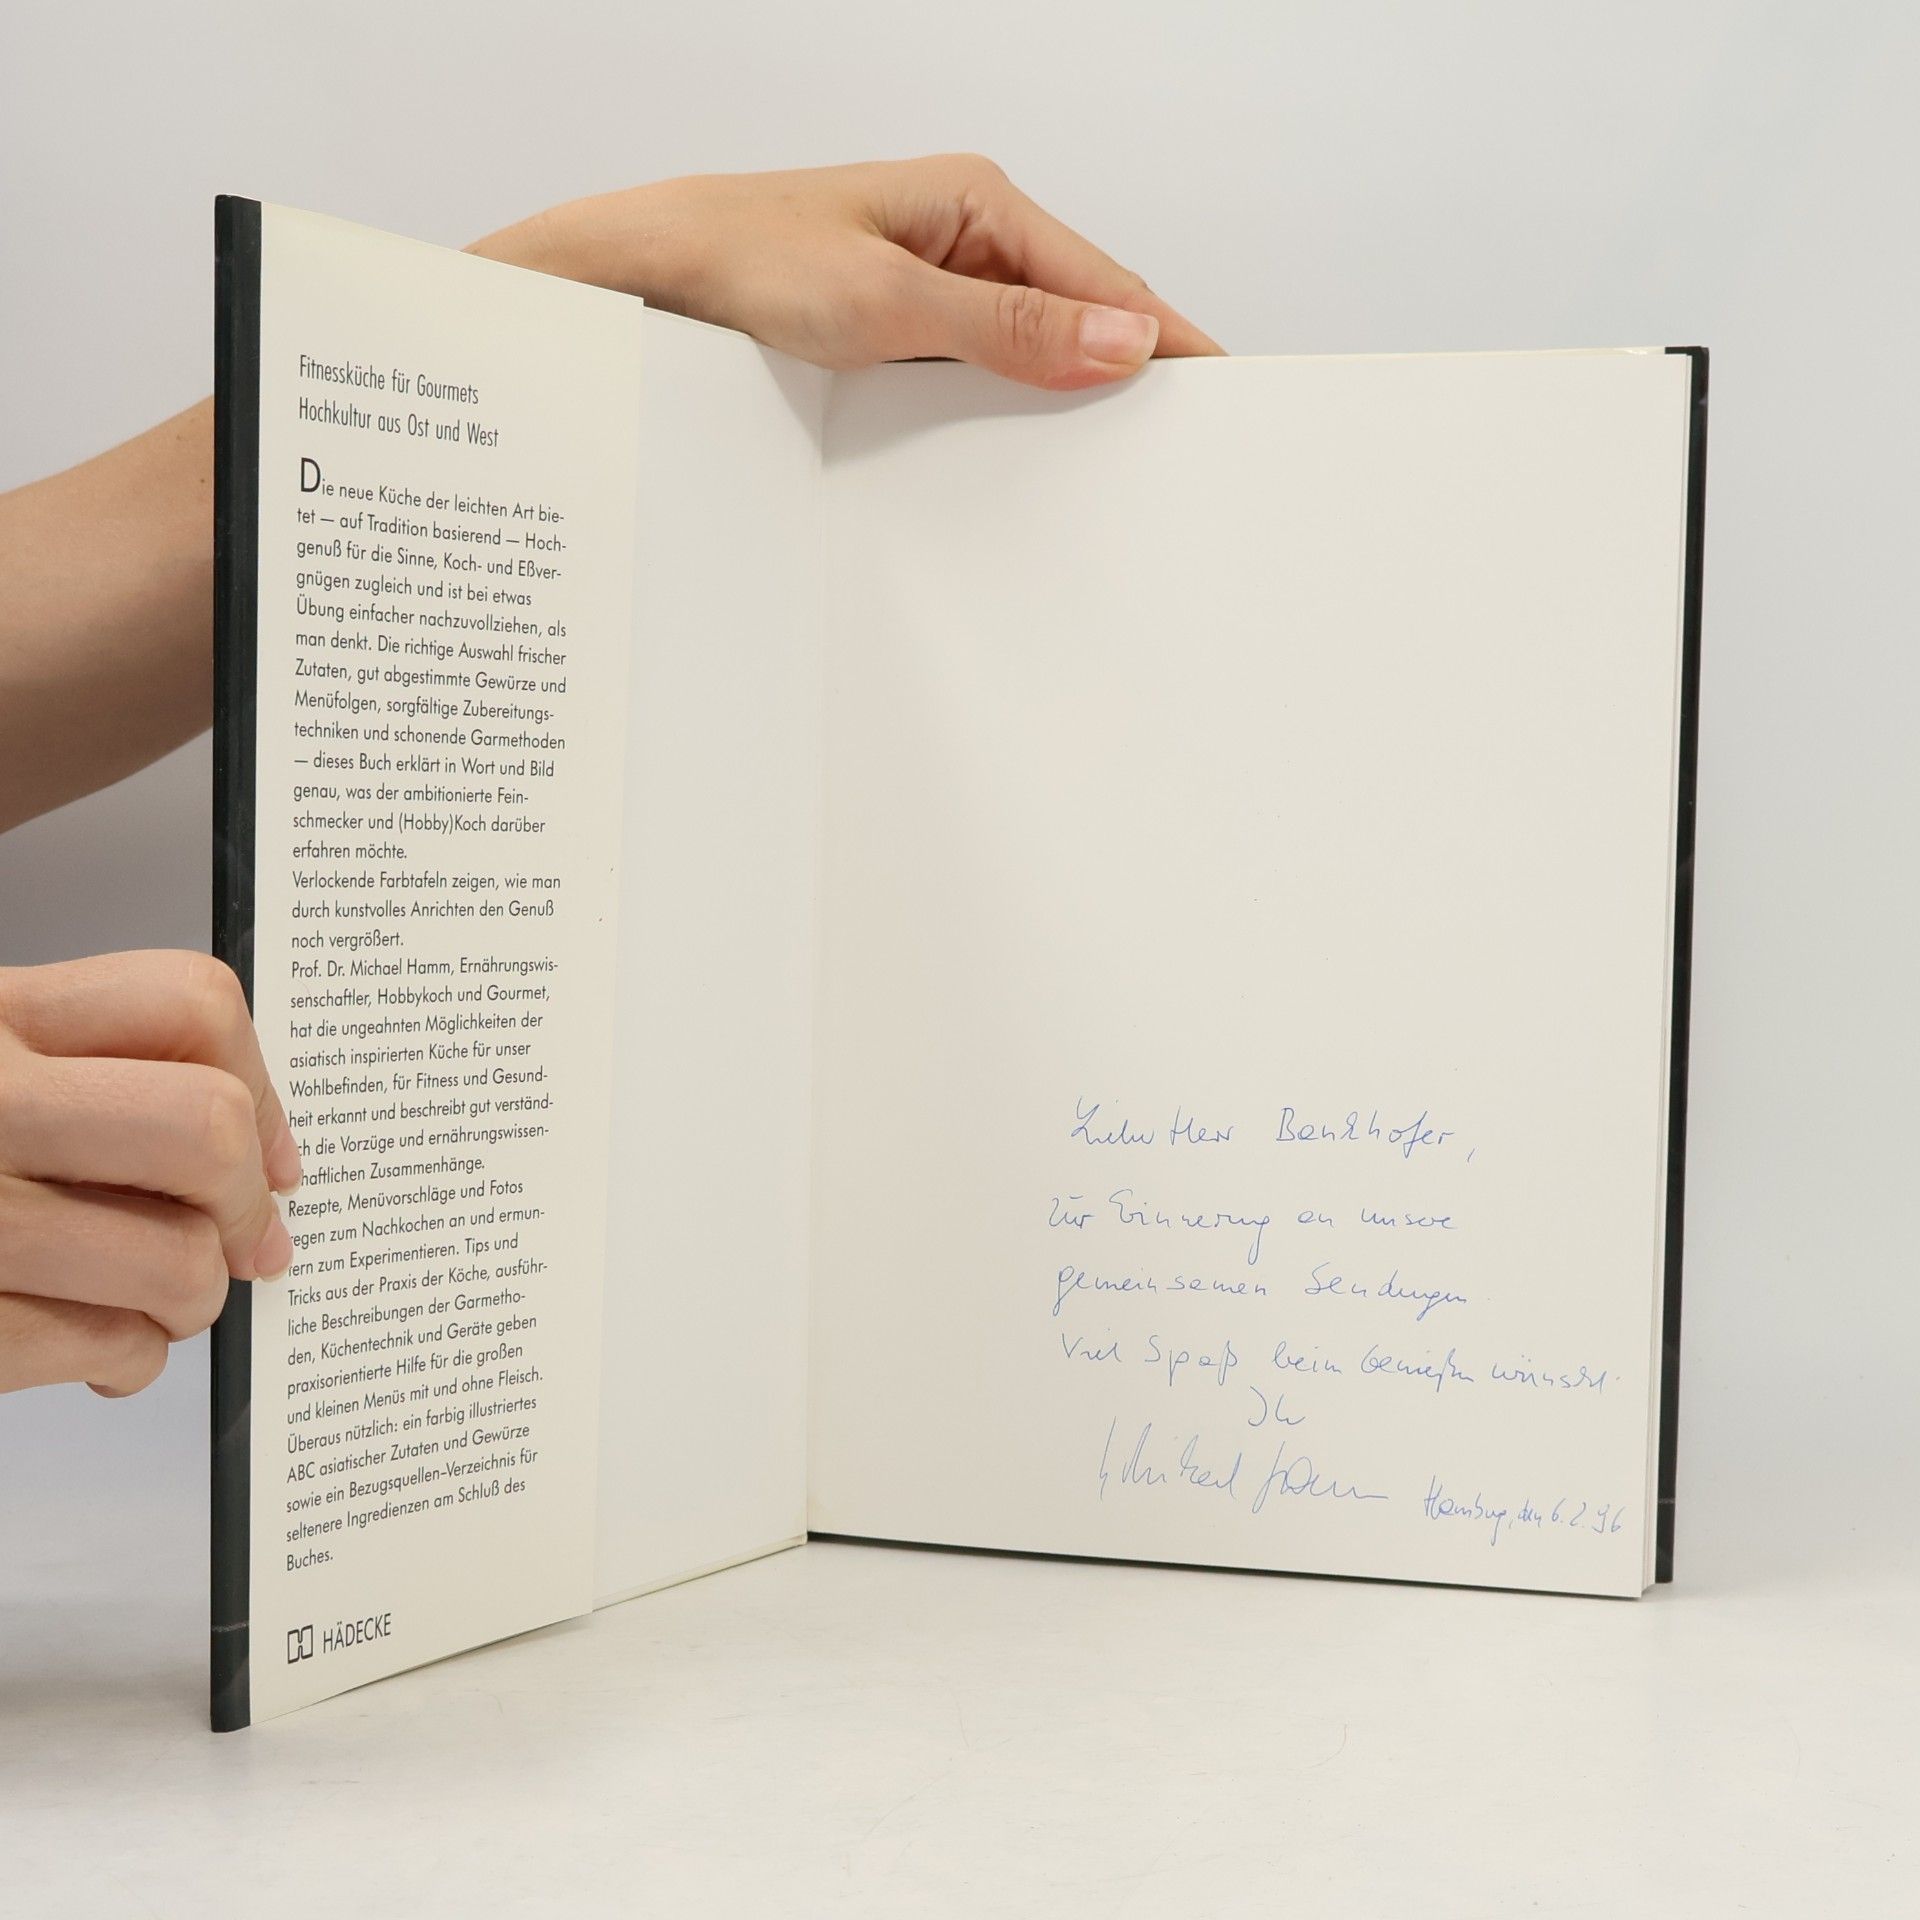 Fitnessküche für Gourmets
Hochkultur aus Ost und West
Die neue Küche der leichten Art bie-
tet — auf Tradition basierend — Hoch-
genuß für die Sinne, Koch- und Eßver-
gnügen zugleich und ist bei etwas
Übung einfacher nachzuvollziehen, als
man denkt. Die richtige Auswahl frischer
Zutaten, gut abgestimmte Gewürze und
Menüfolgen, sorgfältige Zubereitungs-
techniken und schonende Garmethoden
— dieses Buch erklärt in Wort und Bild
genau, was der ambitionierte Fein-
schmecker und (Hobby)Koch darüber
erfahren möchte.
Verlockende Farbtafeln zeigen, wie man
durch kunstvolles Anrichten den Genuß
noch vergrößert.
Prof. Dr. Michael Hamm, Ernährungswis-
senschaftler, Hobbykoch und Gourmet,
hat die ungeahnten Möglichkeiten der
asiatisch inspirierten Küche für unser
Wohlbefinden, für Fitness und Gesund-
heit erkannt und beschreibt gut verständ-
ch die Vorzüge und ernährungswissen-
haftlichen Zusammenhänge.
Rezepte, Menüvorschläge und Fotos
regen zum Nachkochen an und ermun-
tern zum Experimentieren. Tips und
Tricks aus der Praxis der Köche, ausführ-
liche Beschreibungen der Garmetho-
den, Küchentechnik und Geräte geben
praxisorientierte Hilfe für die großen
und kleinen Menüs mit und ohne Fleisch.
Überaus nützlich: ein farbig illustriertes
ABC asiatischer Zutaten und Gewürze
sowie ein Bezugsquellen-Verzeichnis für
seltenere Ingredienzen am Schluß des
Buches.
HÄDECKE
Lieber Herr Bankhofer,
zur Erinnerung an unsere
gemeinsamen Sendungen
Viel Spaß beim Genießen wünscht
Ihr
Michael Hamm Hamburg, den 6.2.96